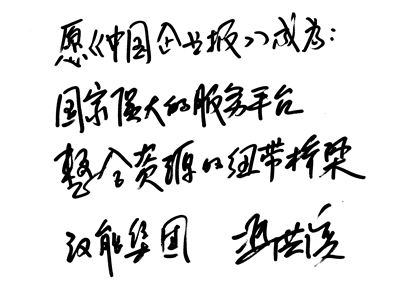 愿《中国企业报》成为：
国家强大的服务平台
整合资源的纽带桥梁
汉能集团